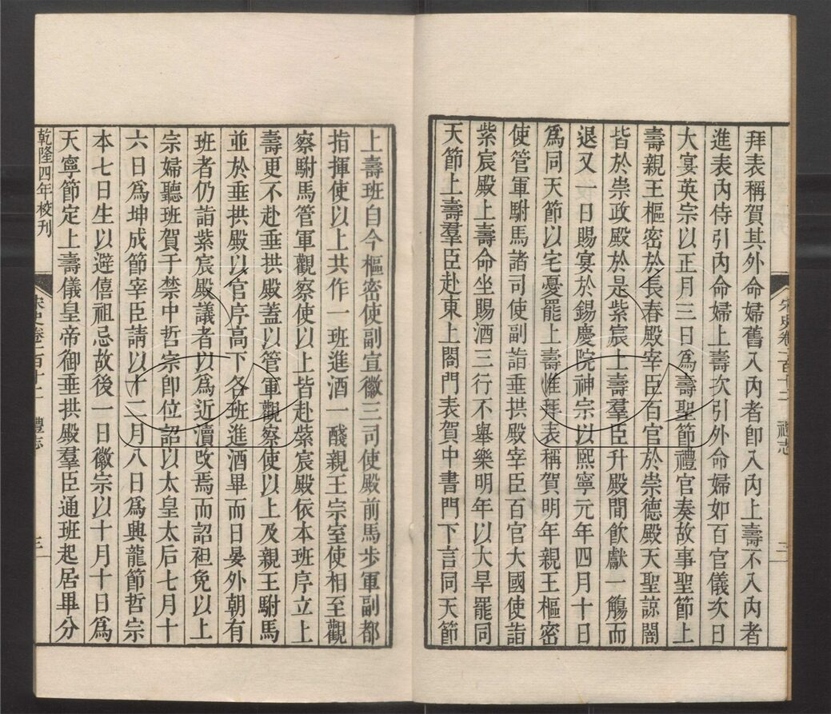 拜表稱賀其外命婦舊入內者卽入內上壽不入內者
進表內侍引內命婦上壽次引外命婦如百官儀次日
大宴英宗以正月三日爲壽聖節禮官奏故事聖節上
壽親王樞密於長春殿宰臣百官於崇德殿天聖諒闇
皆於崇政殿於是紫宸上壽羣臣升殿間飮獻一觴而
退又一日賜宴於錫慶院神宗以熙寧元年四月十日
爲同天節以宅憂罷上壽惟拜表稱賀明年親王樞密
使管軍駙馬諸司使副詣垂拱殿宰臣百官大國使詣
紫宸殿上壽命坐賜酒三行不舉樂明年以大旱罷同
天節上壽羣臣赴東上閤門表賀中書門下言同天節
宋史卷一百十二 禮志 三
上壽班自今樞密使副宣徽三司使殿前馬步軍副都
指揮使以上共作一班進酒一醆親王宗室使相至觀
察駙馬管軍觀察使以上皆赴紫宸殿依本班序立上
壽更不赴垂拱殿蓋以管軍觀察使以上及親王駙馬
並於垂拱殿以官序高下各班進酒畢而日晏外朝有
班者仍詣紫宸殿議者以爲近瀆改焉而詔袒免以上
宗婦聽班賀于禁中哲宗卽位詔以太皇太后七月十
六日爲坤成節宰臣請以十二月八日爲興龍節哲宗
本七日生以避僖祖忌故後一日徽宗以十月十日爲
天寧節定上壽儀皇帝御垂拱殿羣臣通班起居畢分
乾隆四年校刊
宋史卷一百十二 禮志 三